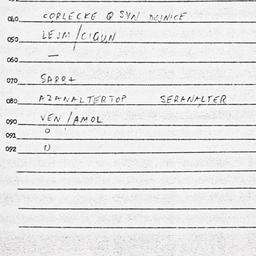 040. CORLECKE Q SYN DOJNICE
050. LEJM/CIGUN
060. —
070. SADD+
080. AZANALTERTOP SERANALTER
090. VEN/AMOL
091. 0
092. 0